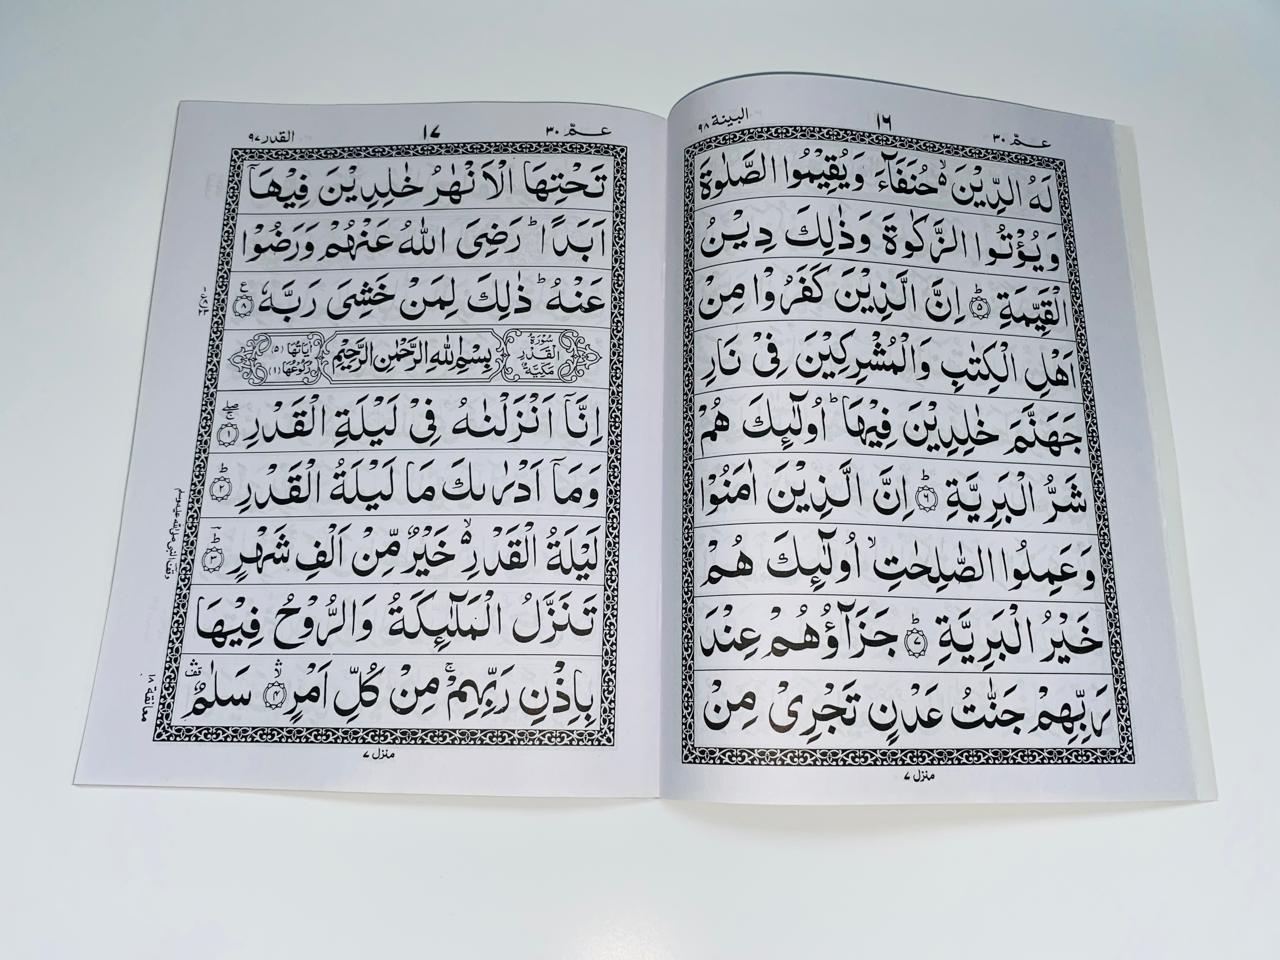 البينة ٩٨
١٦
عمّ ٣٠
لَهُ الدِّيْنَ ۙ۬ حُنَفَآءَ وَيُقِيْمُوا الصَّلٰوةَ
وَيُؤْتُوا الزَّكٰوةَ وَذٰلِكَ دِيْنُ
الْقَيِّمَةِ ؕ﴿۵﴾ اِنَّ الَّذِيْنَ كَفَرُوْا مِنْ
اَهْلِ الْكِتٰبِ وَالْمُشْرِكِيْنَ فِيْ نَارِ
جَهَنَّمَ خٰلِدِيْنَ فِيْهَا ؕ اُولٰٓئِكَ هُمْ
شَرُّ الْبَرِيَّةِ ؕ﴿۶﴾ اِنَّ الَّذِيْنَ اٰمَنُوْا
وَعَمِلُوا الصّٰلِحٰتِ ۙ اُولٰٓئِكَ هُمْ
خَيْرُ الْبَرِيَّةِ ؕ﴿۷﴾ جَزَآؤُهُمْ عِنْدَ
رَبِّهِمْ جَنّٰتُ عَدْنٍ تَجْرِيْ مِنْ
منزل ٧
القدر ٩٧
١٧
عمّ ٣٠
تَحْتِهَا الْاَنْهٰرُ خٰلِدِيْنَ فِيْهَآ
اَبَدًا ؕ رَضِيَ اللّٰهُ عَنْهُمْ وَرَضُوْا
عَنْهُ ؕ ذٰلِكَ لِمَنْ خَشِيَ رَبَّهٗ ﴿۸﴾ ع
سُوْرَةُ الْقَدْرِ مَكِّيَّةٌ
بِسْمِ اللّٰهِ الرَّحْمٰنِ الرَّحِيْمِ
اٰيَاتُهَا (۵) رُكُوْعُهَا (۱)
اِنَّآ اَنْزَلْنٰهُ فِيْ لَيْلَةِ الْقَدْرِ ﴿۱﴾
وَمَآ اَدْرٰىكَ مَا لَيْلَةُ الْقَدْرِ ؕ﴿۲﴾
لَيْلَةُ الْقَدْرِ ۙ۬ خَيْرٌ مِّنْ اَلْفِ شَهْرٍ ؕ﴿۳﴾
تَنَزَّلُ الْمَلٰٓئِكَةُ وَالرُّوْحُ فِيْهَا
بِاِذْنِ رَبِّهِمْ ۚ مِنْ كُلِّ اَمْرٍ ﴿۴﴾ سَلٰمٌ
وقف النبي صلى الله عليه وسلم
معانقة ١٨
منزل ٧